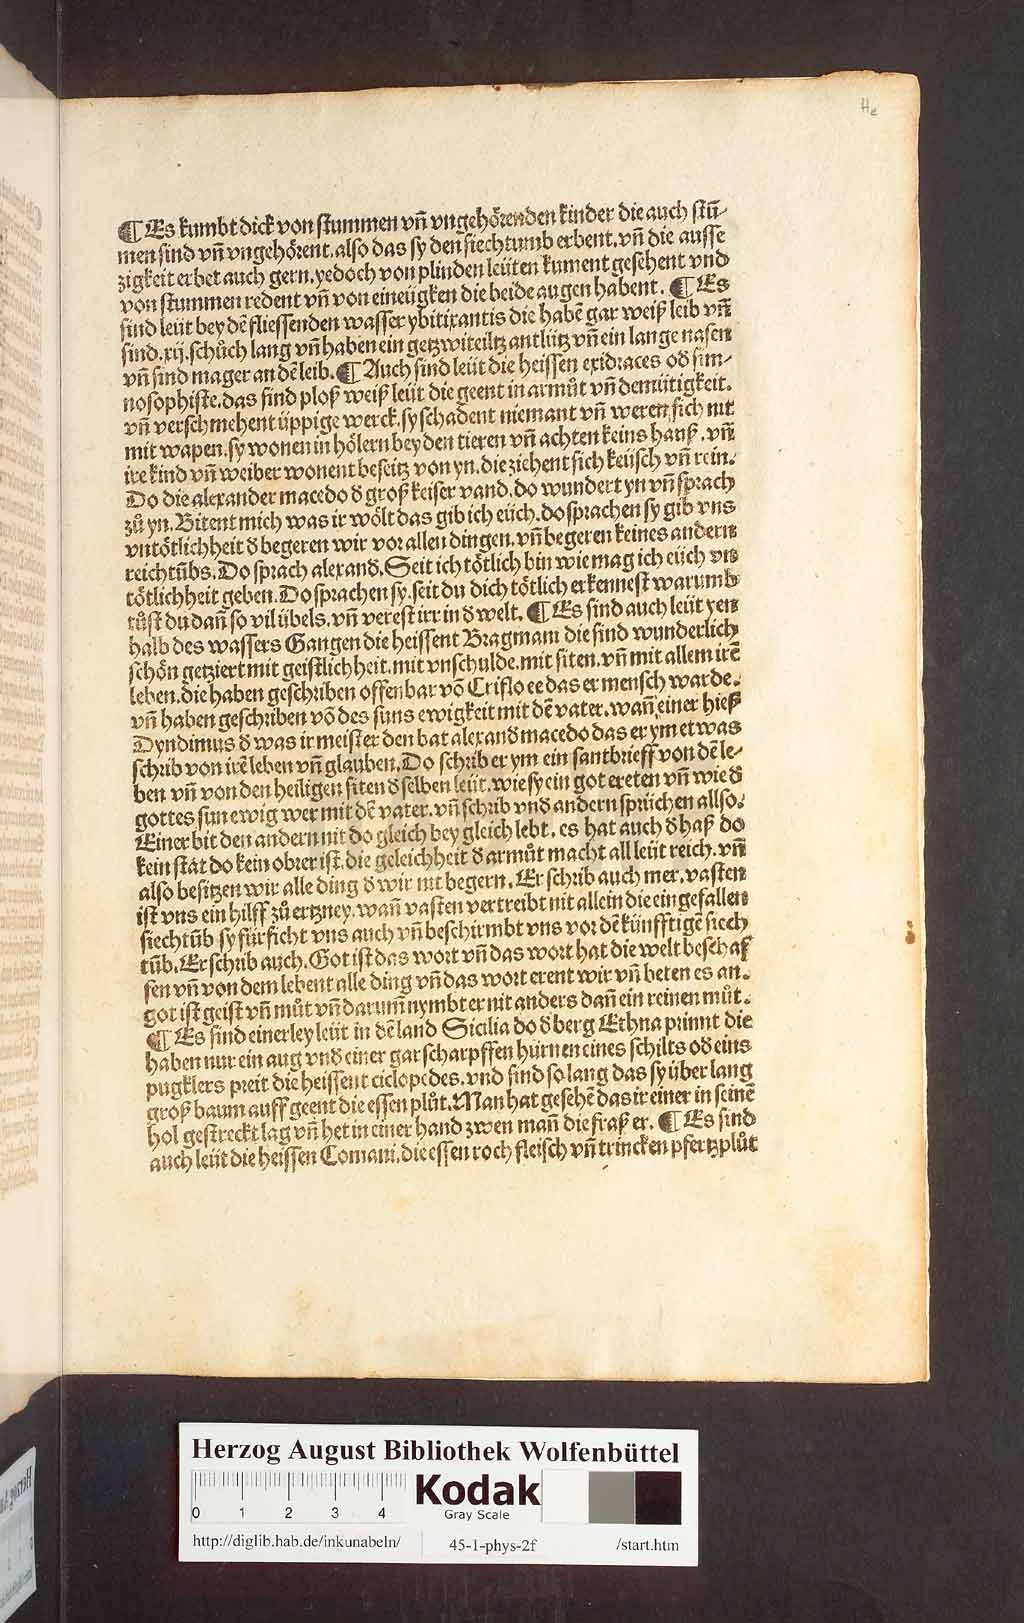 He
¶ Es kumbt dick von stummen vn̄ vngehörenden kinder die auch stū-
men sind vn̄ vngehörent. also das sy den siechtumb erbent. vn̄ die ausse
zigkeit erbet auch gern. yedoch von plinden leüten kument gesehent vnd
von stummen redent vn̄ von eineügken die beide augen habent. ¶ Es
sind leüt bey dē fliessenden wasser ybitixantis die habē gar weiß leib vn̄
sind. xij. schůch lang vn̄ haben ein getzwiteiltz antlütz vn̄ ein lange nasen
vn̄ sind mager an dē leib. ¶ Auch sind leüt die heissen exidraces oð sim-
nosophiste. das sind ploß weiß leüt die geent in armůt vn̄ demütigkeit.
vn̄ verschmehent üppige werck. sy schadent niemant vn̄ weren sich nit
mit wapen. sy wonen in hölern bey den tieren vn̄ achten keins hauß. vn̄
ire kind vn̄ weiber wonent beseitz von yn. die ziehent sich keüsch vn̄ rein.
Do die alexander macedo ð groß keiser vand. do wundert yn vn̄ sprach
zů yn. Bitent mich was ir wölt das gib ich eüch. do sprachen sy gib vns
vntötlichheit ð begeren wir vor allen dingen. vn̄ begeren keines andern
reichtūbs. Do sprach alexanð. Seit ich tötlich bin wie mag ich eüch vn
tötlichheit geben. Do sprachen sy. seit du dich tötlich erkennest warumb
tůst du dan̄ so vil übels. vn̄ verest irr in ð welt. ¶ Es sind auch leüt yen
halb des wassers Gangen die heissent Bragmani die sind wunderlich
schön getziert mit geistlichheit. mit vnschulde. mit siten. vn̄ mit allem irē
leben. die haben geschriben offenbar vō Cristo ee das er mensch warde.
vn̄ haben geschriben vō des suns ewigkeit mit dē vater. wan̄ einer hieß
Dyndimus ð was ir meister den bat alexanð macedo das er ym etwas
schrib von irē leben vn̄ glauben. Do schrib er ym ein santbrieff von dē le-
ben vn̄ von den heiligen siten ð selben leüt. wie sy ein got ereten vn̄ wie ð
gottes sun ewig wer mit dē vater. vn̄ schrib vnð andern sprüchen allso.
Einer bit den andern nit do gleich bey gleich lebt. es hat auch ð haß do
kein stat do kein obrer ist. die geleichheit ð armůt macht all leüt reich. vn̄
also besitzen wir alle ding ð wir nit begern. Er schrib auch mer. vasten
ist vns ein hilff zů ertzney. wan̄ vasten vertreibt nit allein die eingefallen
siechtūb sy fürsicht vns auch vn̄ beschirmbt vns vor dē künfftigē siech
tūb. Er schrib auch. Got ist das wort vn̄ das wort hat die welt beschaf
fen vn̄ von dem lebent alle ding vn̄ das wort erent wir vn̄ beten es an.
got ist geist vn̄ můt vn̄ darum̄ nymbt er nit anders dan̄ ein reinen můt.
¶ Es sind einerley leüt in dē land Sicilia do ð berg Ethna prinnt die
haben nur ein aug vnd einer gar scharpffen hürnen eines schilts oð eins
pugklers preit die heissent ciclopedes. vnd sind so lang das sy über lang
groß baum auff geent die essen plůt. Man hat gesehē das ir einer in seinē
hol gestreckt lag vn̄ het in einer hand zwen man̄ die fraß er. ¶ Es sind
auch leüt die heissen Comani. die essen roch fleisch vn̄ trincken pfertzplůt
Herzog August Bibliothek Wolfenbüttel
0 1 2 3 4
Kodak
Gray Scale
http://diglib.hab.de/inkunabeln/ 45-1-phys-2f /start.htm